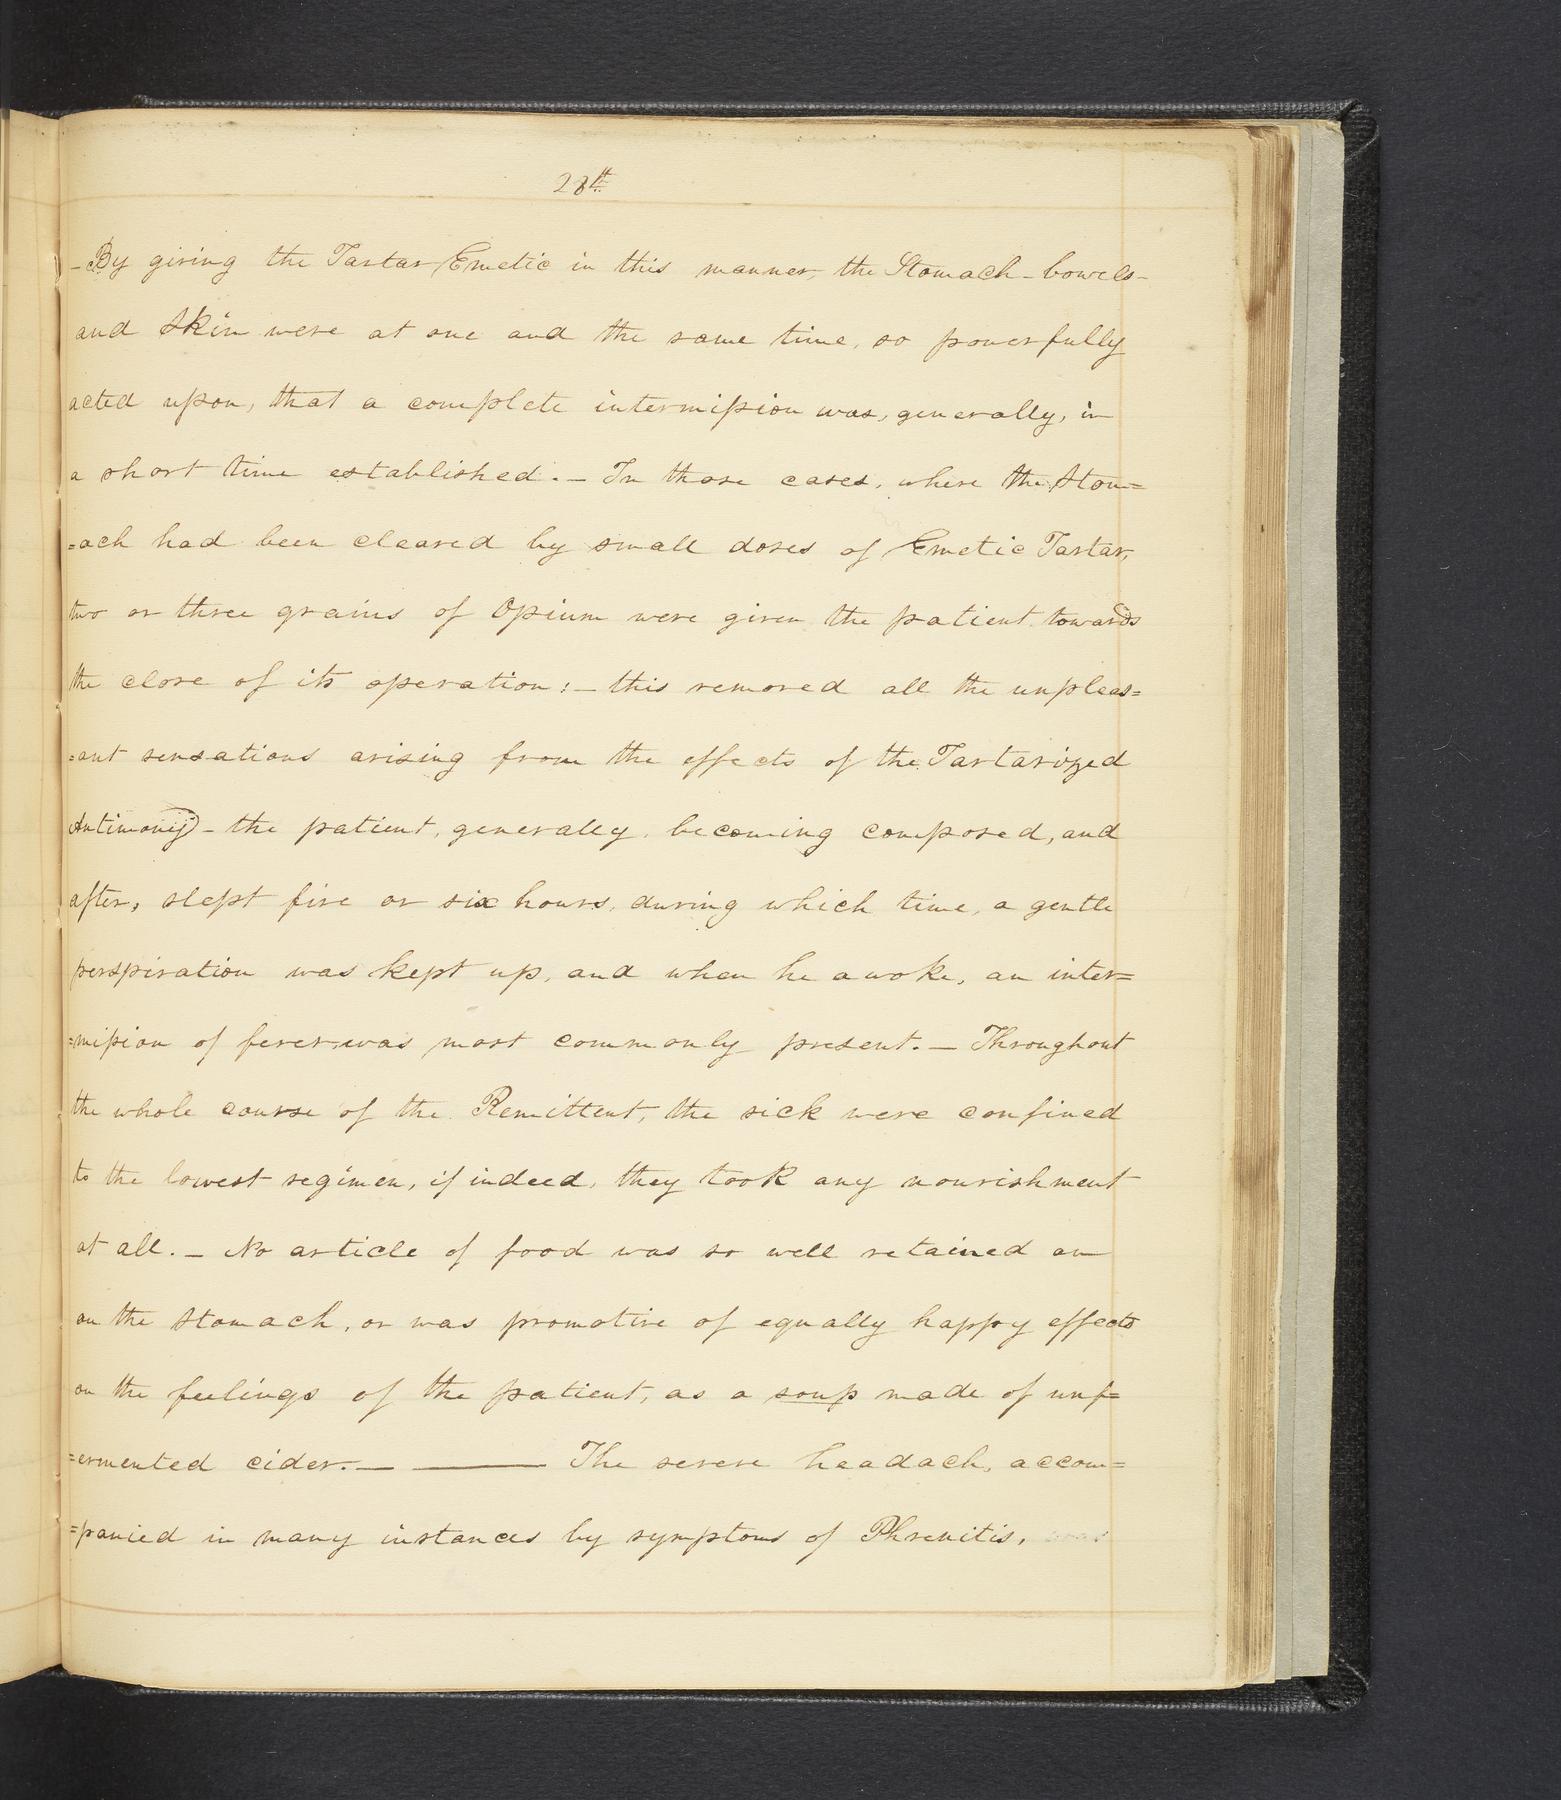 28th
- By giving the Tartar Emetic in this manner, the Stomach - bowels -
and Skin were at one and the same time, so powerfully
acted upon, that a complete intermission was, generally, in
a short time established. - In those cases, where the Stom=
=ach had been cleared by small doses of Emetic Tartar,
two or three grains of Opium were given the patient towards
the close of its operation: - this removed all the unpleas=
=ant sensations arising from the effects of the Tartarized
Antimony - the patient, generally, becoming composed, and
after, slept five or six hours, during which time, a gentle
perspiration was kept up, and when he awoke, an inter=
=mission of fever was most commonly present. - Throughout
the whole course of the Remittent, the sick were confined
to the lowest regimen, if indeed, they took any nourishment
at all. - No article of food was so well retained on
on the stomach, or was promotive of equally happy effects
on the feelings of the patient, as a soup made of unf=
=ermented cider. - —— The severe headach, accom=
=panied in many instances by symptoms of Phrenitis, was